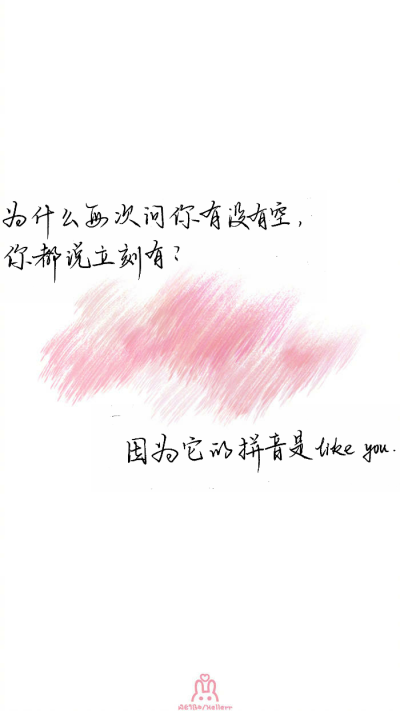 为什么每次问你有没有空，
你都说立刻有？
因为它的拼音是like you.